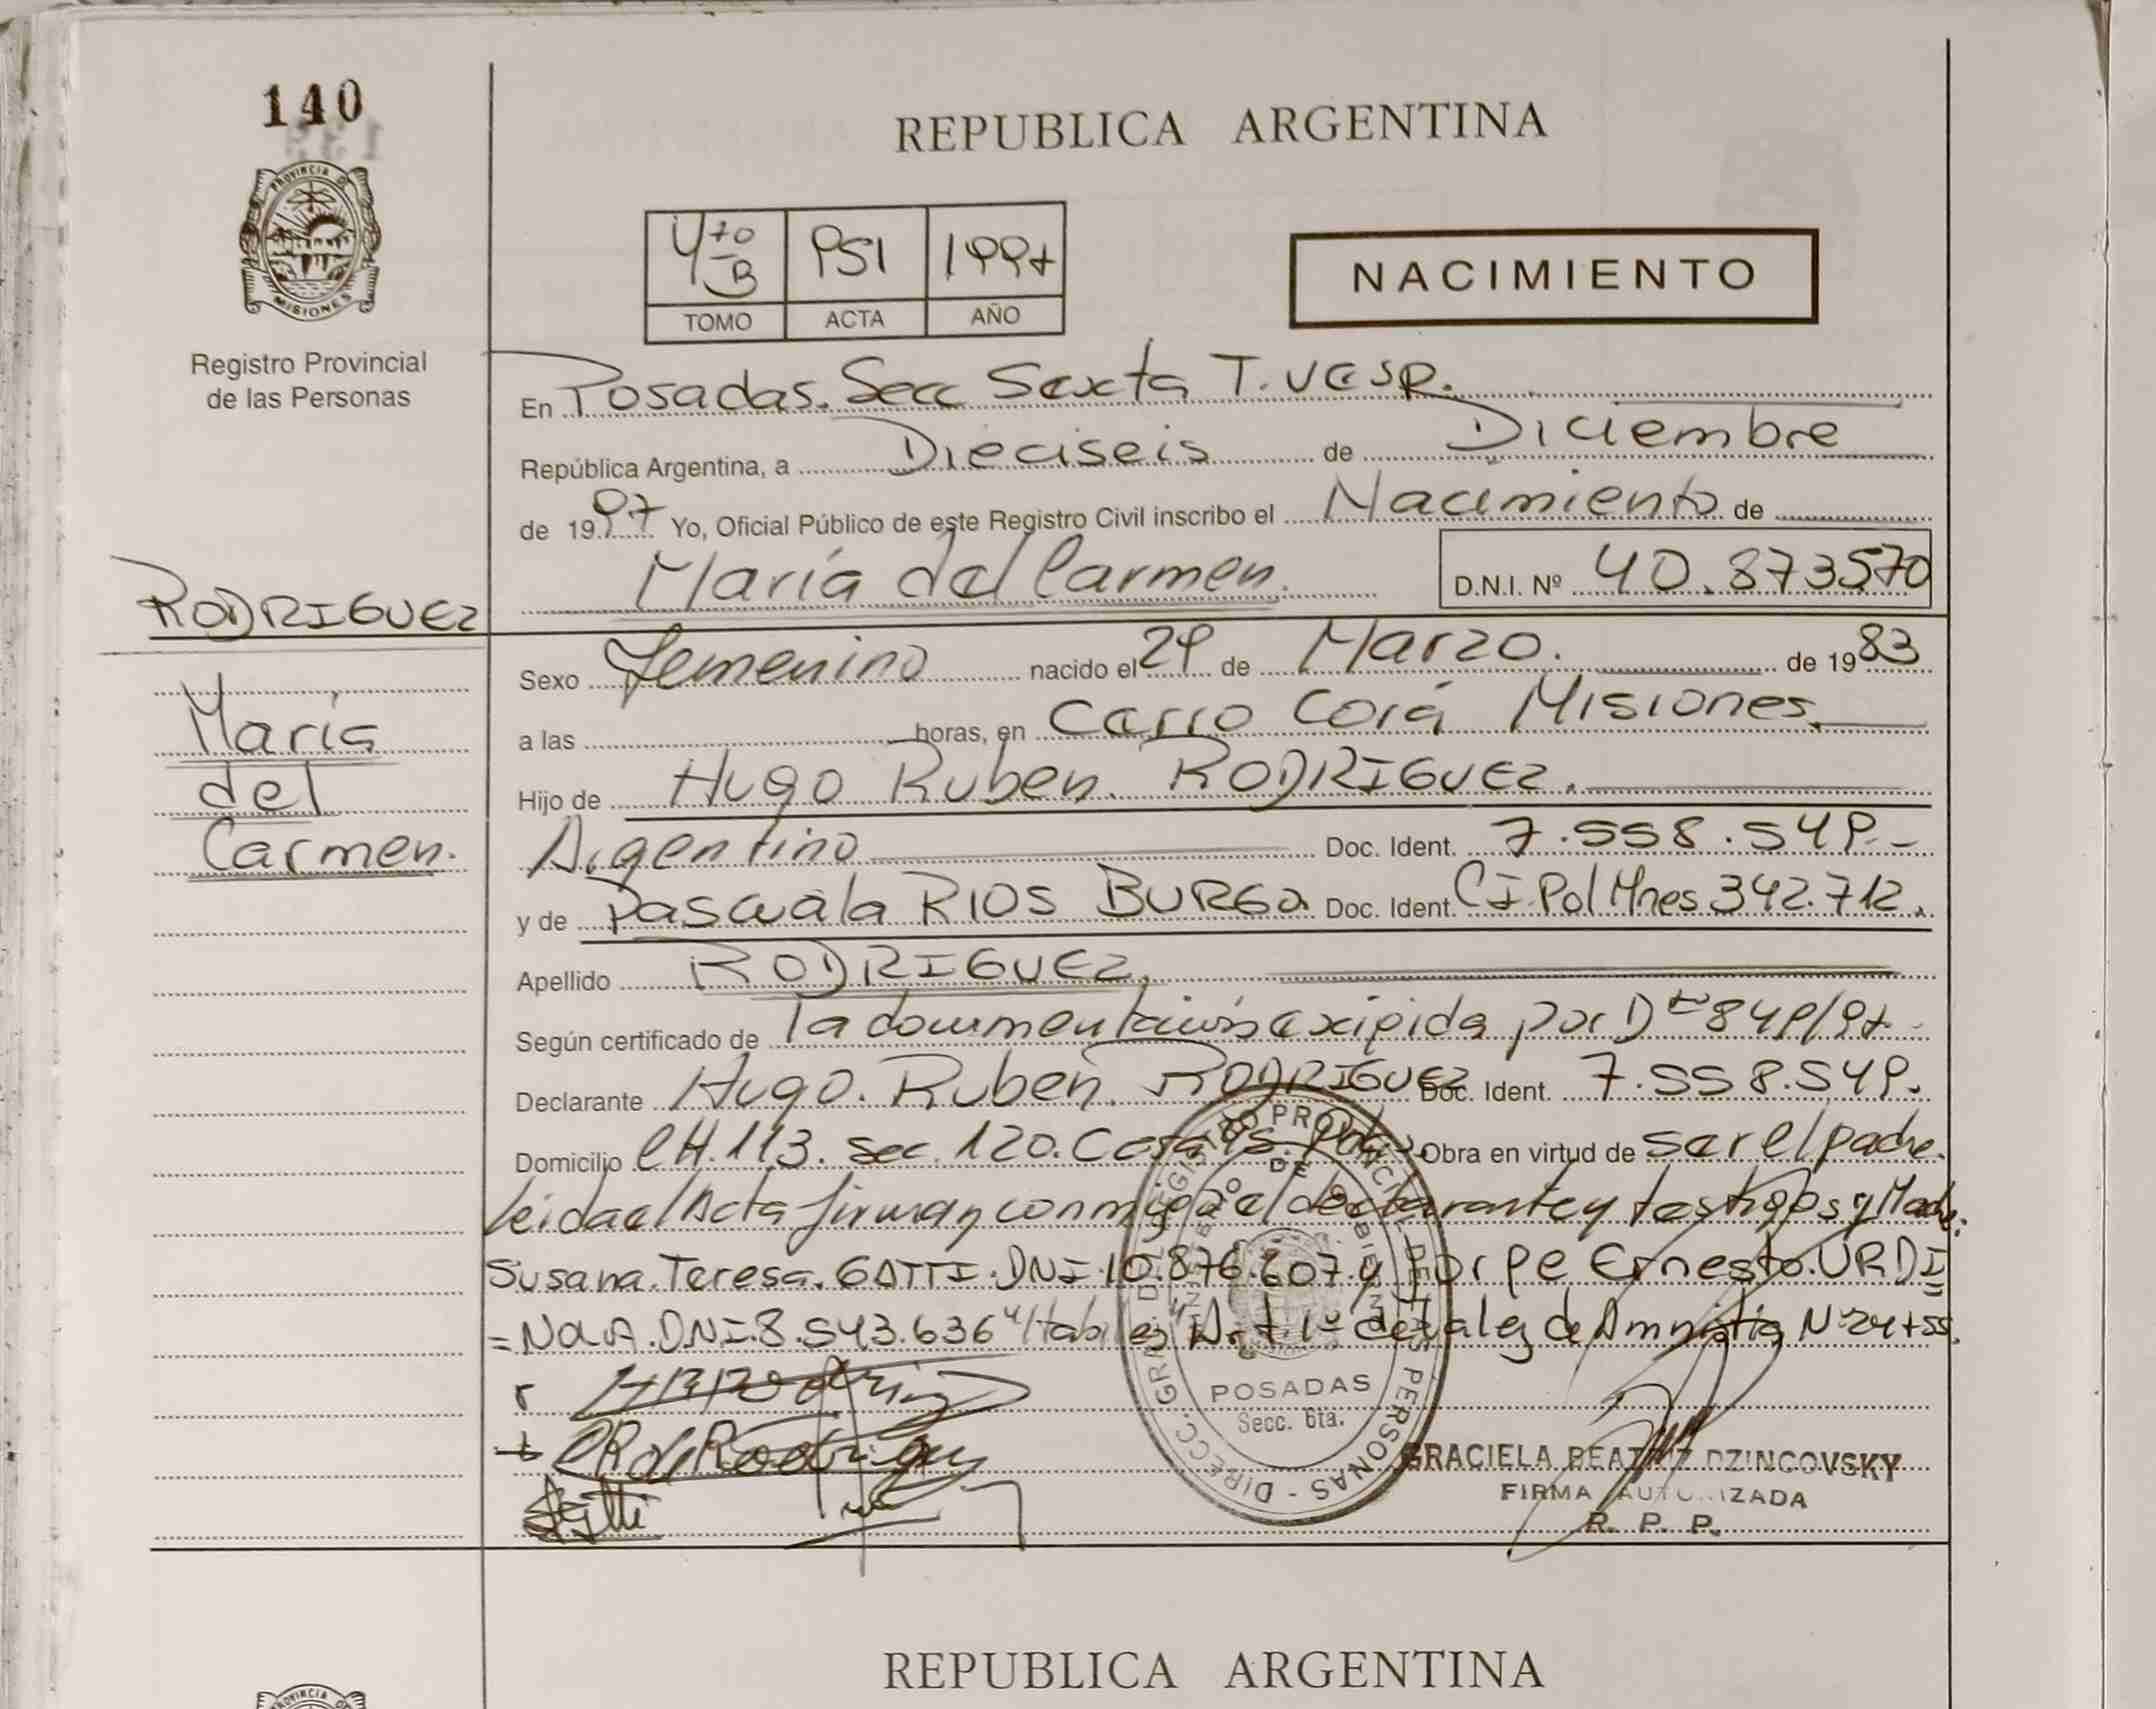 140
REPUBLICA ARGENTINA
PROVINCIA D
MISIONES
Registro Provincial
de las Personas
4to B 951 1997
TOMO ACTA AÑO
NACIMIENTO
En Posadas. Secc Sexta T. vesp.
República Argentina, a Dieciseis de Diciembre
de 1997 Yo, Oficial Público de este Registro Civil inscribo el Nacimiento de
María del Carmen. D.N.I. Nº 40.873570
RODRIGUEZ
María
del
Carmen.
Sexo Femenino nacido el 29 de Marzo. de 1983
a las horas, en Cerro Corá Misiones.
Hijo de Hugo Ruben. RODRIGUEZ.
Argentino Doc. Ident. 7.558.549.-
y de Pascuala RIOS BURGA Doc. Ident. C.I. Pol Mnes 342.712.
Apellido RODRIGUEZ.
Según certificado de la documentación exigida por Dto 849/97.
Declarante Hugo. Ruben. RODRIGUEZ Doc. Ident. 7.558.549.
Domicilio CH.113. sec. 120. Casa 15. Pdas Obra en virtud de ser el padre.
Leida el Acta firman conmigo el declarante y testigos y Madre:
Susana. Teresa. GATTI. DNI 10.876.607 y Jorge Ernesto. URDI
=NOLA. DNI. 8.543.636 "Habiles" Art. 1º de Ley de Amnistia Nº 24755.
DIRECC. GRAL. DEL REGISTRO PROVINCIAL DE LAS PERSONAS -
POSADAS
Secc. 6ta.
GRACIELA BEATRIZ DZINCOVSKY
FIRMA AUTORIZADA
R. P. P.
REPUBLICA ARGENTINA
PROVINCIA D